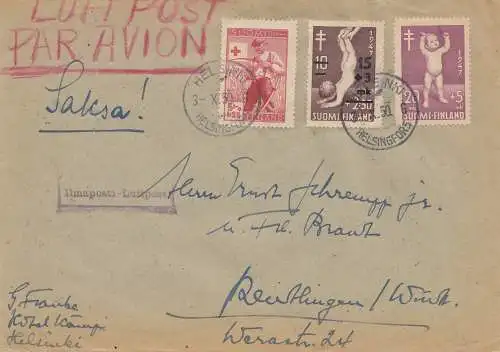 LUFTPOST
PAR AVION
Saksa!
SUOMI
FINLAND
1947
10
15
+3
mk
+2.50
SUOMI-FINLAND
1947
20
+5
SUOMI-FINLAND
HELSINKI
3- X.50
HELSINGFORS
HELSINKI
50
HELSINGFORS
Ilmaposti-Luftpost
Herrn Ernst Schrempp jr.
u. Frl. Braut
Reutlingen / Württ.
Werastr. 24
G Franke
Hotel Kämp
Helsinki